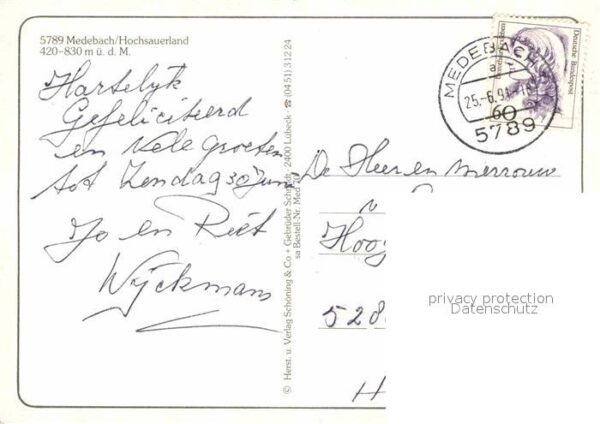 5789 Medebach/Hochsauerland
420-830 m ü. d. M.
Hartelyk
Gefeliciteerd
en Vele Groeten
tot Zondag 30 Juni
Jo en Riet
Wijckmans
© Herst. u. Verlag Schöning & Co + Gebrüder Schmidt, 2400 Lübeck · ☎ (04 51) 3 12 24
sa Bestell-Nr. Med
MEDEBACH
a
25.-6.91.
5789
60
Deutsche Bundespost
De Heer en Mevrouw
Hoog
528
H
privacy protection
Datenschutz